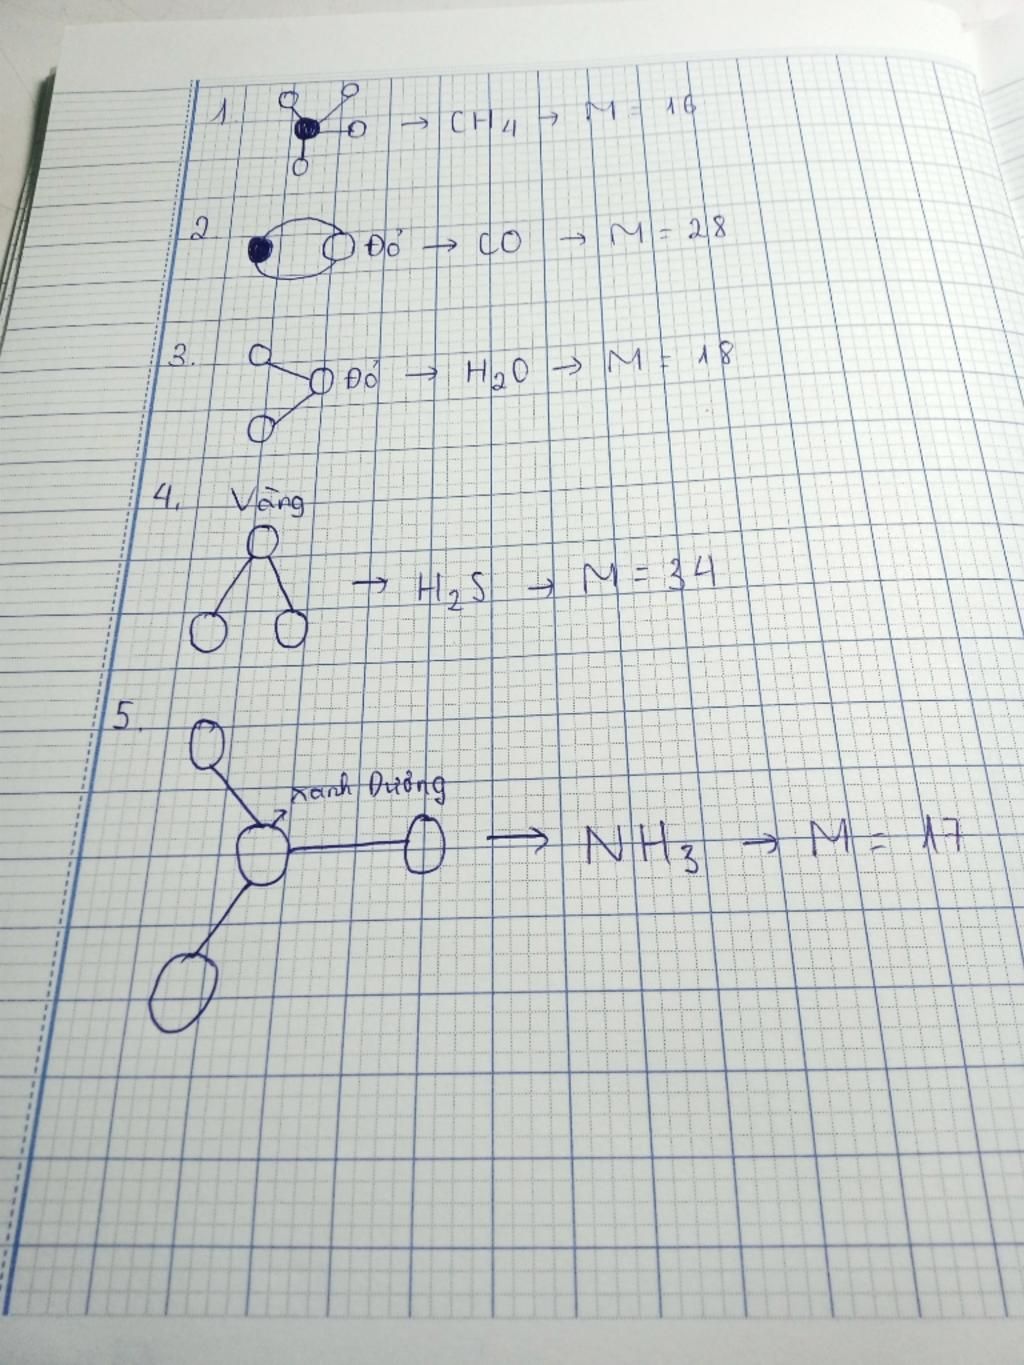 1. → CH4 → M = 16
2 Đỏ → CO → M = 28
3. Đỏ → H2O → M = 18
4. Vàng
→ H2S → M = 34
5.
xanh Dương
→ NH3 → M = 17